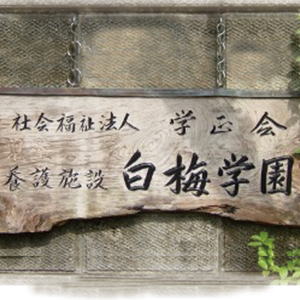 社会福祉法人 学正会
養護施設 白梅学園